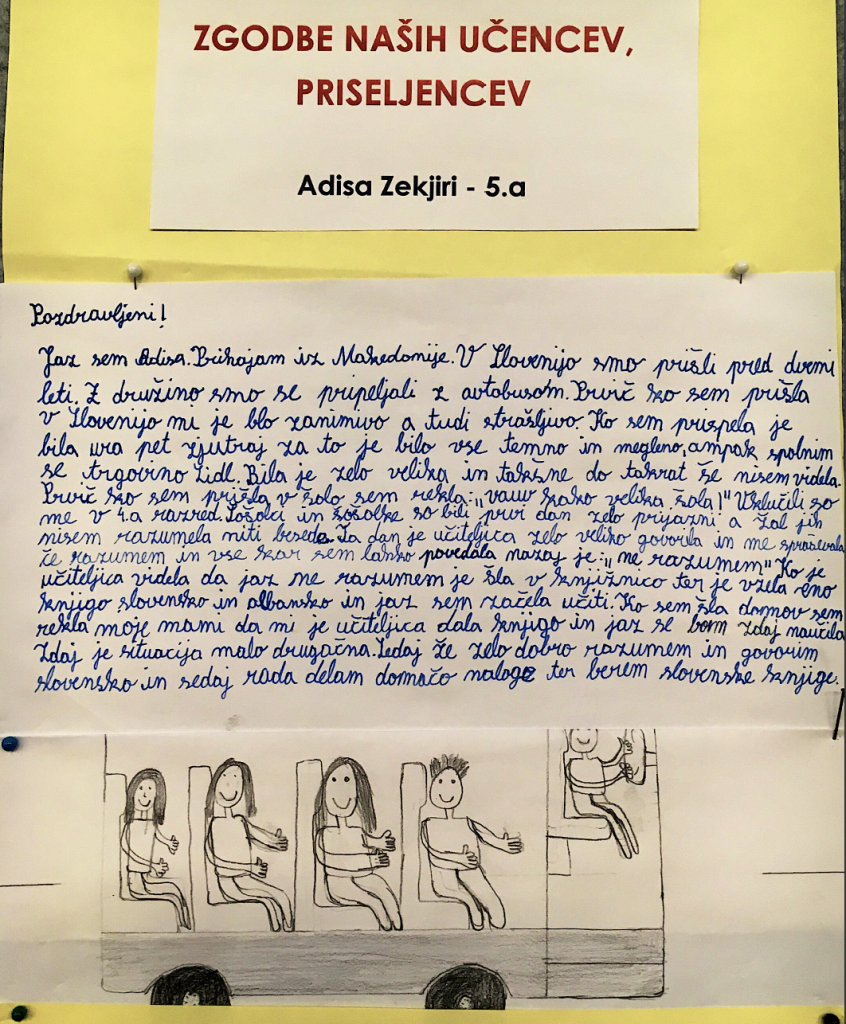 ZGODBE NAŠIH UČENCEV,
PRISELJENCEV
Adisa Zekjiri - 5.a
Pozdravljeni!
Jaz sem Adisa. Prihajam iz Makedonije. V Slovenijo smo prišli pred dvemi
leti. Z družino smo se pripeljali z avtobusom. Prvič ko sem prišla
v Slovenijo mi je blo zanimivo a tudi strašljivo. Ko sem prispela je
bila ura pet zjutraj za to je bilo vse temno in megleno, ampak spolnim
se trgovino Lidl. Bila je zelo velika in takšne do takrat še nisem videla.
Prvič ko sem prišla v šolo sem rekla: „vauv kako velika šola!" Vključili so
me v 4.a razred. Sošolci in sošolke so bili prvi dan zelo prijazni a žal jih
nisem razumela niti besede. Ta dan je učiteljica zelo veliko govorila in me spraševala
če razumem in vse kar sem lahko povedala nazaj je: „ne razumem." Ko je
učiteljica videla da jaz ne razumem je šla v knjižnico ter je vzela eno
knjigo slovensko in albansko in jaz sem začela učiti. Ko sem šla domov sem
rekla moje mami da mi je učiteljica dala knjigo in jaz se bom zdaj naučila
Zdaj je situacija malo drugačna. Sedaj že zelo dobro razumem in govorim
slovensko in sedaj rada delam domačo naloge ter berem slovenske knjige.